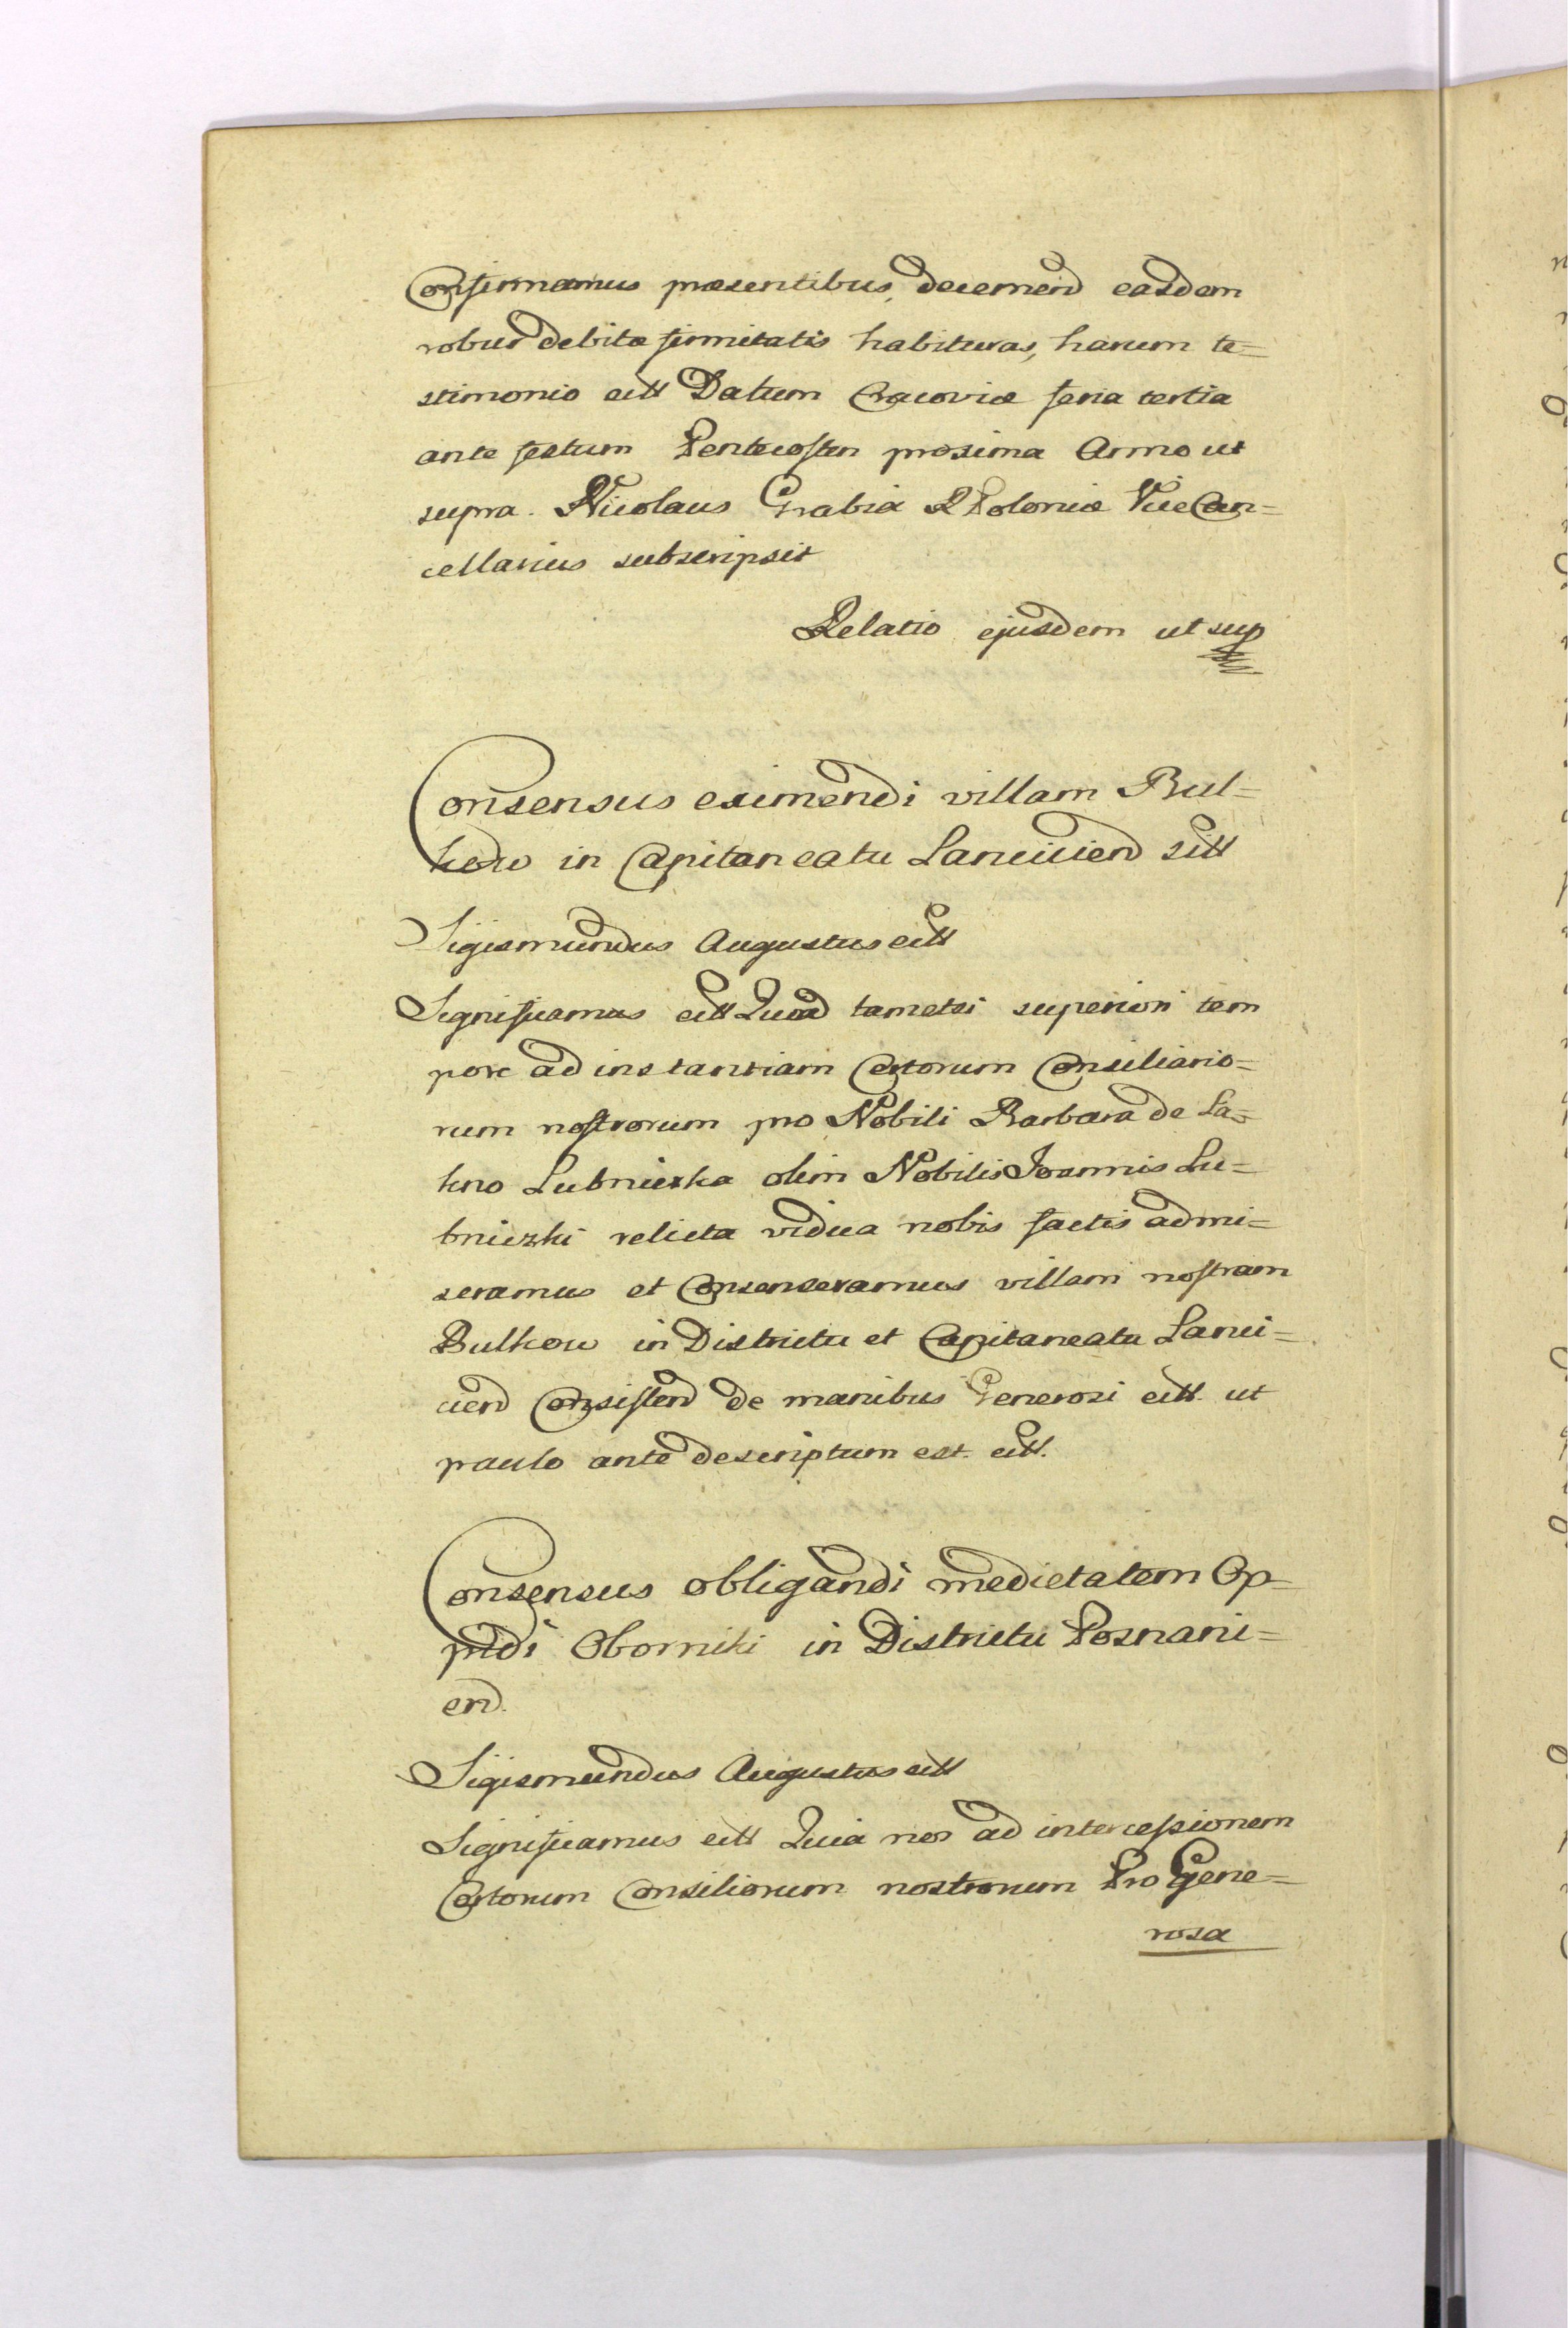 Confirmamus præsentibus, decernend easdem
robur debitæ firmitatis habituras, harum te=
stimonio ett Datum Cracoviæ feria tertia
ante festum Pentecosten proxima Anno ut
supra. Nicolaus Grabia R Poloniæ ViceCan=
cellarius subscripsit
Relatio ejusdem ut sup
Consensus eximendi villam Bul=
kow in Capitaneatu Lanciciend sitt
Sigismundus Augustus ett
Significamus ett Quod tametsi superiori tem
pore ad instantiam Certorum Consiliario=
rum nostrorum pro Nobili Barbara de La=
kno Lubniczka olim Nobilis Joannis Lu=
bniczki relicta vidua nobis factis admi=
seramus et Consenseramus villam nostram
Bulkow in Districtu et Capitaneatu Lanci=
ciend Consistend de manibus Generosi ett. ut
paulo ante descriptum est. ett.
Consensus obligandi medietatem Op=
pidi Oborniki in Districtu Posnani=
end.
Sigismundus Augustus ett
Significamus ett Quia nos ad intercessionem
Certorum Consiliorum nostrorum Pro Gene=
rosa